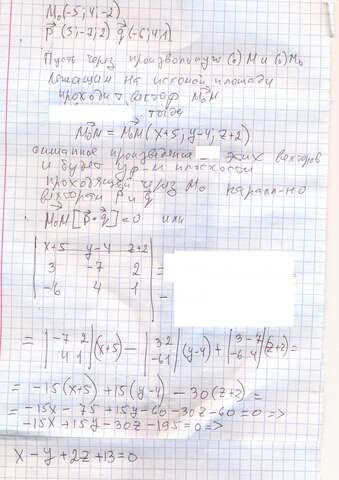 M₀(-5; 4; -2)
P⃗ (3; -7; 2) q⃗ (-6; 4; 1)
Пусть через произвольную (·) M и (·) M₀
лежащим на искомой площади
проходит вектор M₀M
тогда
M₀M = M₀M (x+5; y-4; z+2)
произведение этих векторов
и будет ур-м плоскости
проходящей через M₀ паралл-но
векторам P и q
M₀M [P⃗ · q⃗] = 0 или
| x+5 y-4 z+2 |
| 3 -7 2 | =
| -6 4 1 | -
= | -7 2 | (x+5) - | 3 2 | (y-4) + | 3 -7 | (z+2) =
| 4 1 | | -6 1 | | -6 4 |
= -15(x+5) + 15(y-4) - 30(z+2) =
= -15x - 75 + 15y - 60 - 30z - 60 = 0 =>
-15x + 15y - 30z - 195 = 0 =>
x - y + 2z + 13 = 0